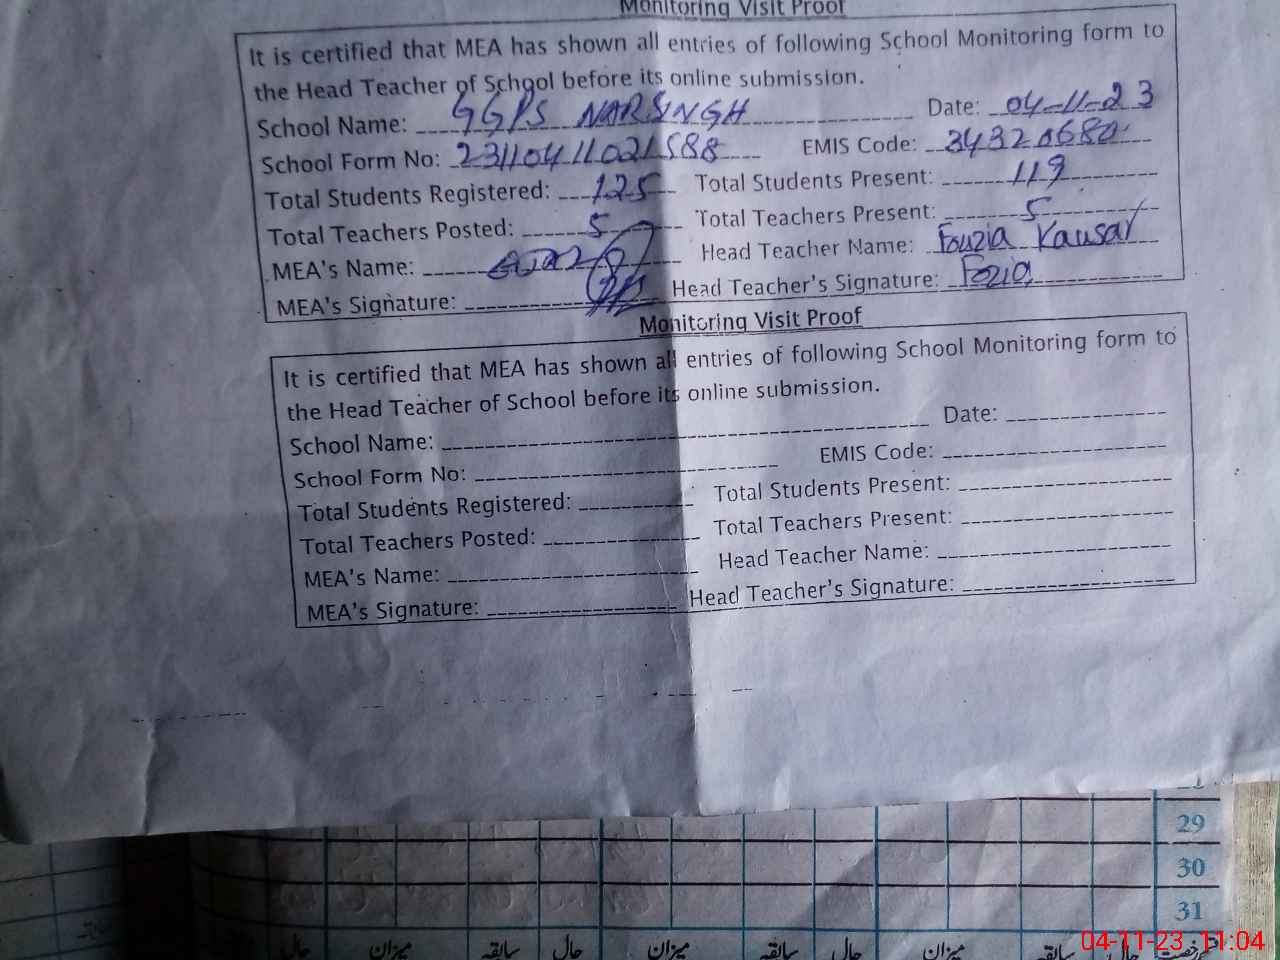 Monitoring Visit Proof
It is certified that MEA has shown all entries of following School Monitoring form to
the Head Teacher of School before its online submission.
School Name: GGPS NARSINGH Date: 04-11-23
School Form No: 23110411021588 EMIS Code: 34320680
Total Students Registered: 125 Total Students Present: 119
Total Teachers Posted: 5 Total Teachers Present: 5
MEA's Name: Head Teacher Name: Fouzia Kausar
MEA's Signature: Head Teacher's Signature: Fozia
Monitoring Visit Proof
It is certified that MEA has shown all entries of following School Monitoring form to
the Head Teacher of School before its online submission.
School Name: Date:
School Form No: EMIS Code:
Total Students Registered: Total Students Present:
Total Teachers Posted: Total Teachers Present:
MEA's Name: Head Teacher Name:
MEA's Signature: Head Teacher's Signature:
29
30
31
حال میزان سابقہ حال میزان سابقہ حال میزان سابقہ حال
04-11-23 11:04